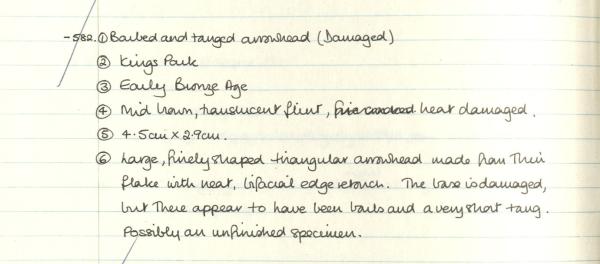 -582. ① Barbed and tanged arrowhead (Damaged)
② Kings Park
③ Early Bronze Age
④ Mid brown, translucent flint, fire cracked heat damaged.
⑤ 4.5cm x 2.9cm.
⑥ Large, finely shaped triangular arrowhead made from Thin
flake with neat, bifacial edge retouch. The base is damaged,
but There appear to have been barbs and a very short tang.
Possibly an unfinished specimen.